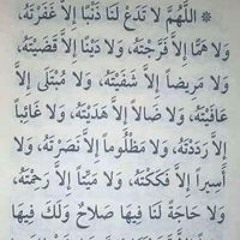 * اللَّهُمَّ لا تَدَعْ لَنَا ذَنْبًا إِلاَّ غَفَرْتَهُ،
وَلا هَمًّا إِلاَّ فَرَّجْتَهُ، وَلا دَيْنًا إِلاَّ قَضَيْتَهُ،
وَلا مَرِيضاً إِلاَّ شَفَيْتَهُ، وَلا مُبْتَلًى إِلاَّ
عَافَيْتَهُ، وَلا ضَالاًّ إِلاَّ هَدَيْتَهُ، وَلا غَائِباً
إِلاَّ رَدَدْتَهُ، وَلا مَظْلُوماً إِلاَّ نَصَرْتَهُ، وَلا
أَسِيراً إِلاَّ فَكَكْتَهُ، وَلا مَيِّتاً إِلاَّ رَحِمْتَهُ،
وَلا حَاجَةً لَنَا فِيهَا صَلاحٌ وَلَكَ فِيهَا